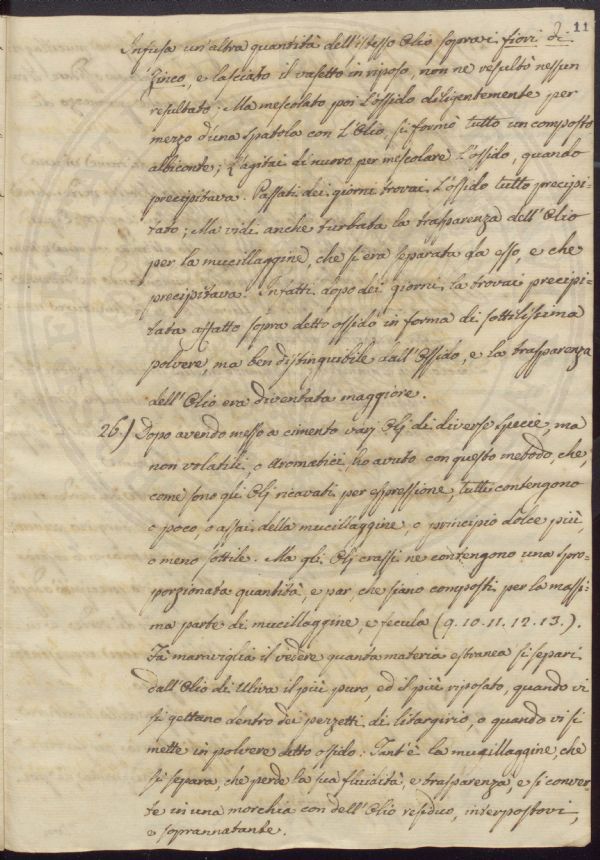 11
Infusa un'altra quantità dell'istesso Olio sopra i fiori di
Zinco, e lasciato il vasetto in riposo, non ne resultò nessun
resultato: Ma mescolato poi l'ossido diligentemente per
mezzo d'una spatola con l'Olio, si formò tutto un composto
albicante; L'agitai di nuovo per mescolare l'ossido, quando
precipitava. Passati dei giorni trovai l'ossido tutto precipi=
tato; Ma vidi anche turbata la trasparenza dell'Olio
per la mucillaggine, che si era separata da esso, e che
precipitava. Infatti dopo dei giorni la trovai precipi=
tata affatto sopra detto ossido in forma di sottilissima
polvere, ma ben distinguibile dall'Ossido, e la trasparenza
dell'Olio era diventata maggiore.
26.) Dopo avendo messo a cimento varj Olj di diverse specie, ma
non volatili, o Aromatici, ho avuto con questo metodo, che,
come sono gli Olj ricavati per espressione, tutti contengono
o poco, o assai della mucillaggine, o principio dolce più,
o meno sottile. Ma gli Olj crassi ne contengono una spro=
porzionata quantità, e par, che siano composti per la massi=
ma parte di mucillaggine, e fecula (9. 10. 11. 12. 13.).
Fà maraviglia il vedere quanta materia estranea si separi
dall'Olio di Uliva il più puro, ed il più riposato, quando vi
si gettano dentro dei pezzetti di litargirio, o quando vi si
mette in polvere detto ossido: Tant'è la mucillaggine, che
si separa, che perde la sua fluidità, e trasparenza, e si conver=
te in una morchia con dell'Olio residuo, interpostovi,
e soprannatante.